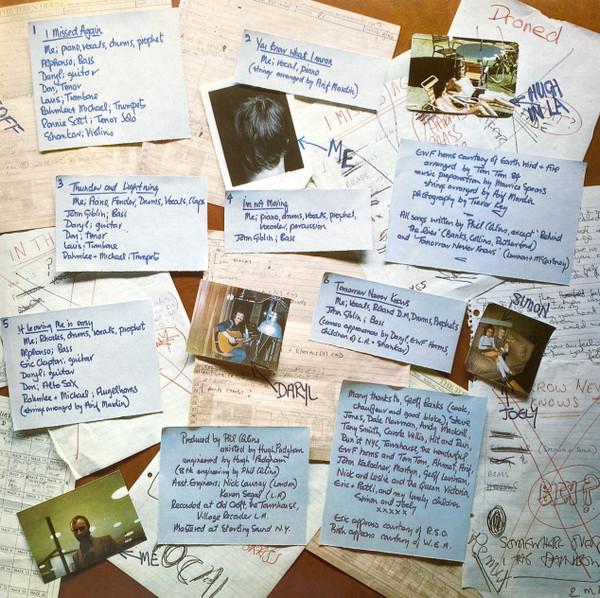 1 I Missed Again
Me; piano, vocals, drums, prophet
Alphonso; Bass
Daryl; guitar
Don; Tenor
Louis; Trombone
Rahmlee + Michael; Trumpets
Ronnie Scott; Tenor Solo
Shankar; Violins
2 You Know What I mean
Me; vocal, piano
(strings arranged by Arif Mardin)
Droned
HUGH
IN LA
ME
3 Thunder and Lightning
Me; Piano, Fender, Drums, Vocals, Claps
John Giblin; Bass
Daryl; guitar
Don; tenor
Louis; Trombone
Rahmlee + Michael; Trumpets
4 Im not Moving
Me; piano, drums, vocals, prophet,
vocoder, percussion
John Giblin; Bass
EWF Horns courtesy of Earth Wind + Fire
arranged by Tom Tom 84
music preparation by Maurice Spears
strings arranged by Arif Mardin
photography by Trevor Key
All songs written by Phil Collins, except 'Behind
the Lines' (Banks, Collins, Rutherford)
and 'Tomorrow Never Knows' (Lennon + McCartney)
IN TH
5 If Leaving Me is easy
Me; Rhodes, drums, vocals, prophet
Alphonso; Bass
Eric Clapton; guitar
Daryl; guitar
Don; Alto Sax
Rahmlee + Michael; Flugelhorns
(strings arranged by Arif Mardin)
DARYL
6 Tomorrow Never Knows
Me; Vocals, Roland D.M, Drums, Prophets
John Giblin; Bass
(cameo appearances by Daryl, EWF Horns,
children of L.A + Shankar)
SIMON
JOELY
ROW NEV
KNOWS
Produced by Phil Collins
assisted by Hugh Padgham
engineered by Hugh Padgham
(8 tk engineering by Phil Collins)
Asst. Engineers; Nick Launay (London)
Karen Segal (L.A)
Recorded at Old Croft, the Townhouse,
Village Recorder L.A.
Mastered at Sterling Sound N.Y.
Many thanks to, Geoff Banks (cook,
chauffeur and good bloke), Steve
Jones, Dale Newman, Andy Mackrill,
Tony Smith, Carole Willis, Hit and Run,
Run it NYC, Townhouse, the wonderful
EWF horns and Tom Tom, Ahmet, Arif,
John Kalodner, Martin, Geoff, Lonham,
Nick and Leslie and the Queen Victoria,
Eric + Patti, and my lovely children
Simon and Joely
xxxxx
Eric appears courtesy of R.S.O.
Phil appears courtesy of W.E.A.
ME
SOMEWHERE